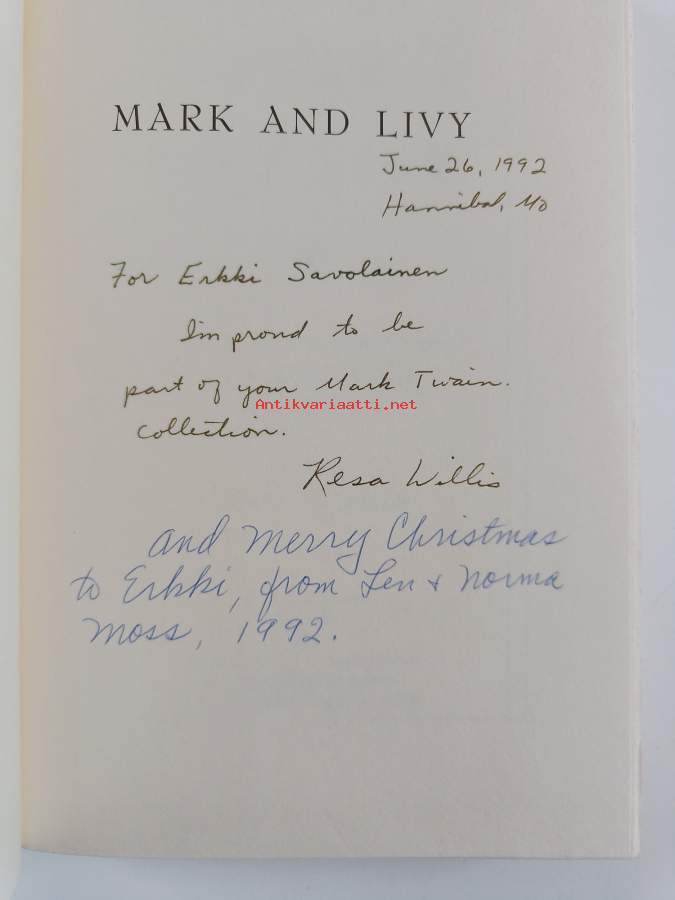 MARK AND LIVY
June 26, 1992
Hannibal, Mo
For Erkki Savolainen
I'm proud to be
part of your Mark Twain.
Antikvariaatti.net
collection.
Resa Willis
and Merry Christmas
to Erkki, from Len & Norma
Moss, 1992.